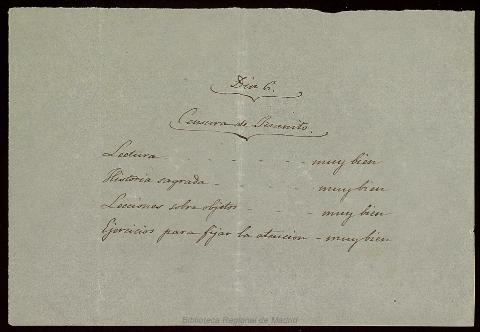 Dia 6.
Censura de Juanito.
Lectura - - - - muy bien
Historia sagrada - - - muy bien
Lecciones sobre objetos - - - muy bien
Ejercicios para fijar la atencion - muy bien
Biblioteca Regional de Madrid